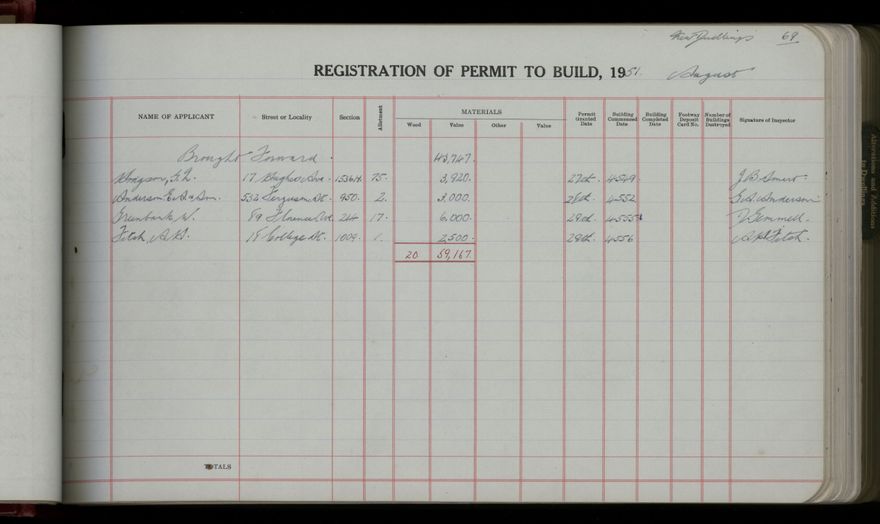 New Dwellings 69
REGISTRATION OF PERMIT TO BUILD, 1951. August
NAME OF APPLICANT Street or Locality Section Allotment MATERIALS Wood Value Other Value Permit Granted Date Building Commenced Date Building Completed Date Footway Deposit Card No. Number of Buildings Destroyed Signature of Inspector
Brought Forward. 43,747.
17 Hughes Ave. 1536H. 75. 3,920. 27th. 4549. J B Smart.
Anderson E.A. & Son. 553 Ferguson St. 950. 2. 3,000. 28th. 4552 E.A. Anderson
Greenbank, W. 89 244 17. 6,000. 28th. 4555 Gemmell.
Fitch, A.H. 18 College St. 1009. 1. 2,500. 29th. 4556 Fitch.
20 59,167.
TOTALS
Alterations and Additions
to Dwellings